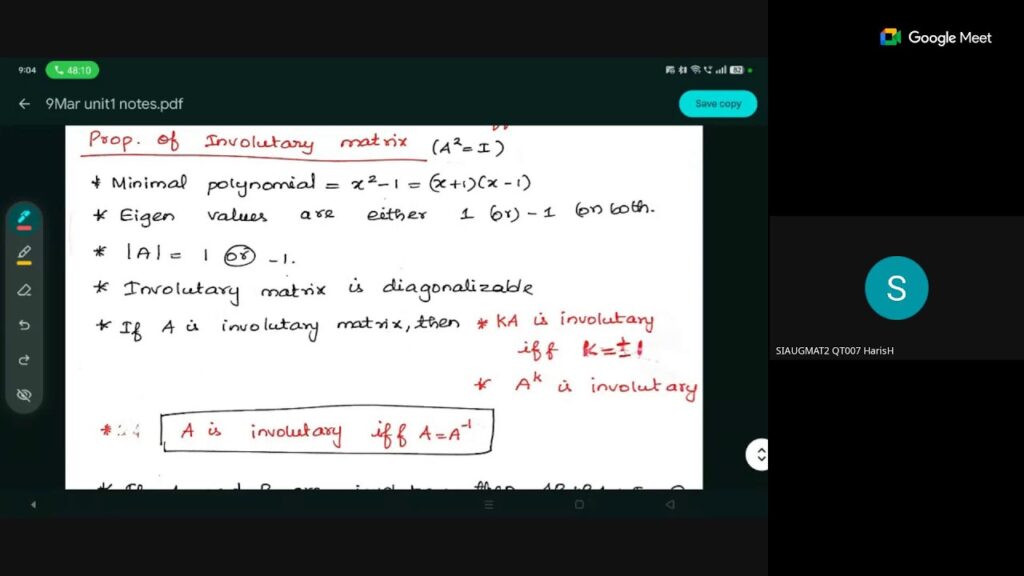 Google Meet
9:04 48:10 82
9Mar unit1 notes.pdf Save copy
Prop. of Involutary matrix (A²=I)
* Minimal polynomial = x²-1 = (x+1)(x-1)
* Eigen values are either 1 (or) -1 (or) both.
* |A| = 1 or -1.
* Involutary matrix is diagonalizable
* If A is involutary matrix, then * KA is involutary
iff K=±1
* Aᵏ is involutary
* A is involutary iff A=A⁻¹
S
SIAUGMAT2 QT007 HarisH